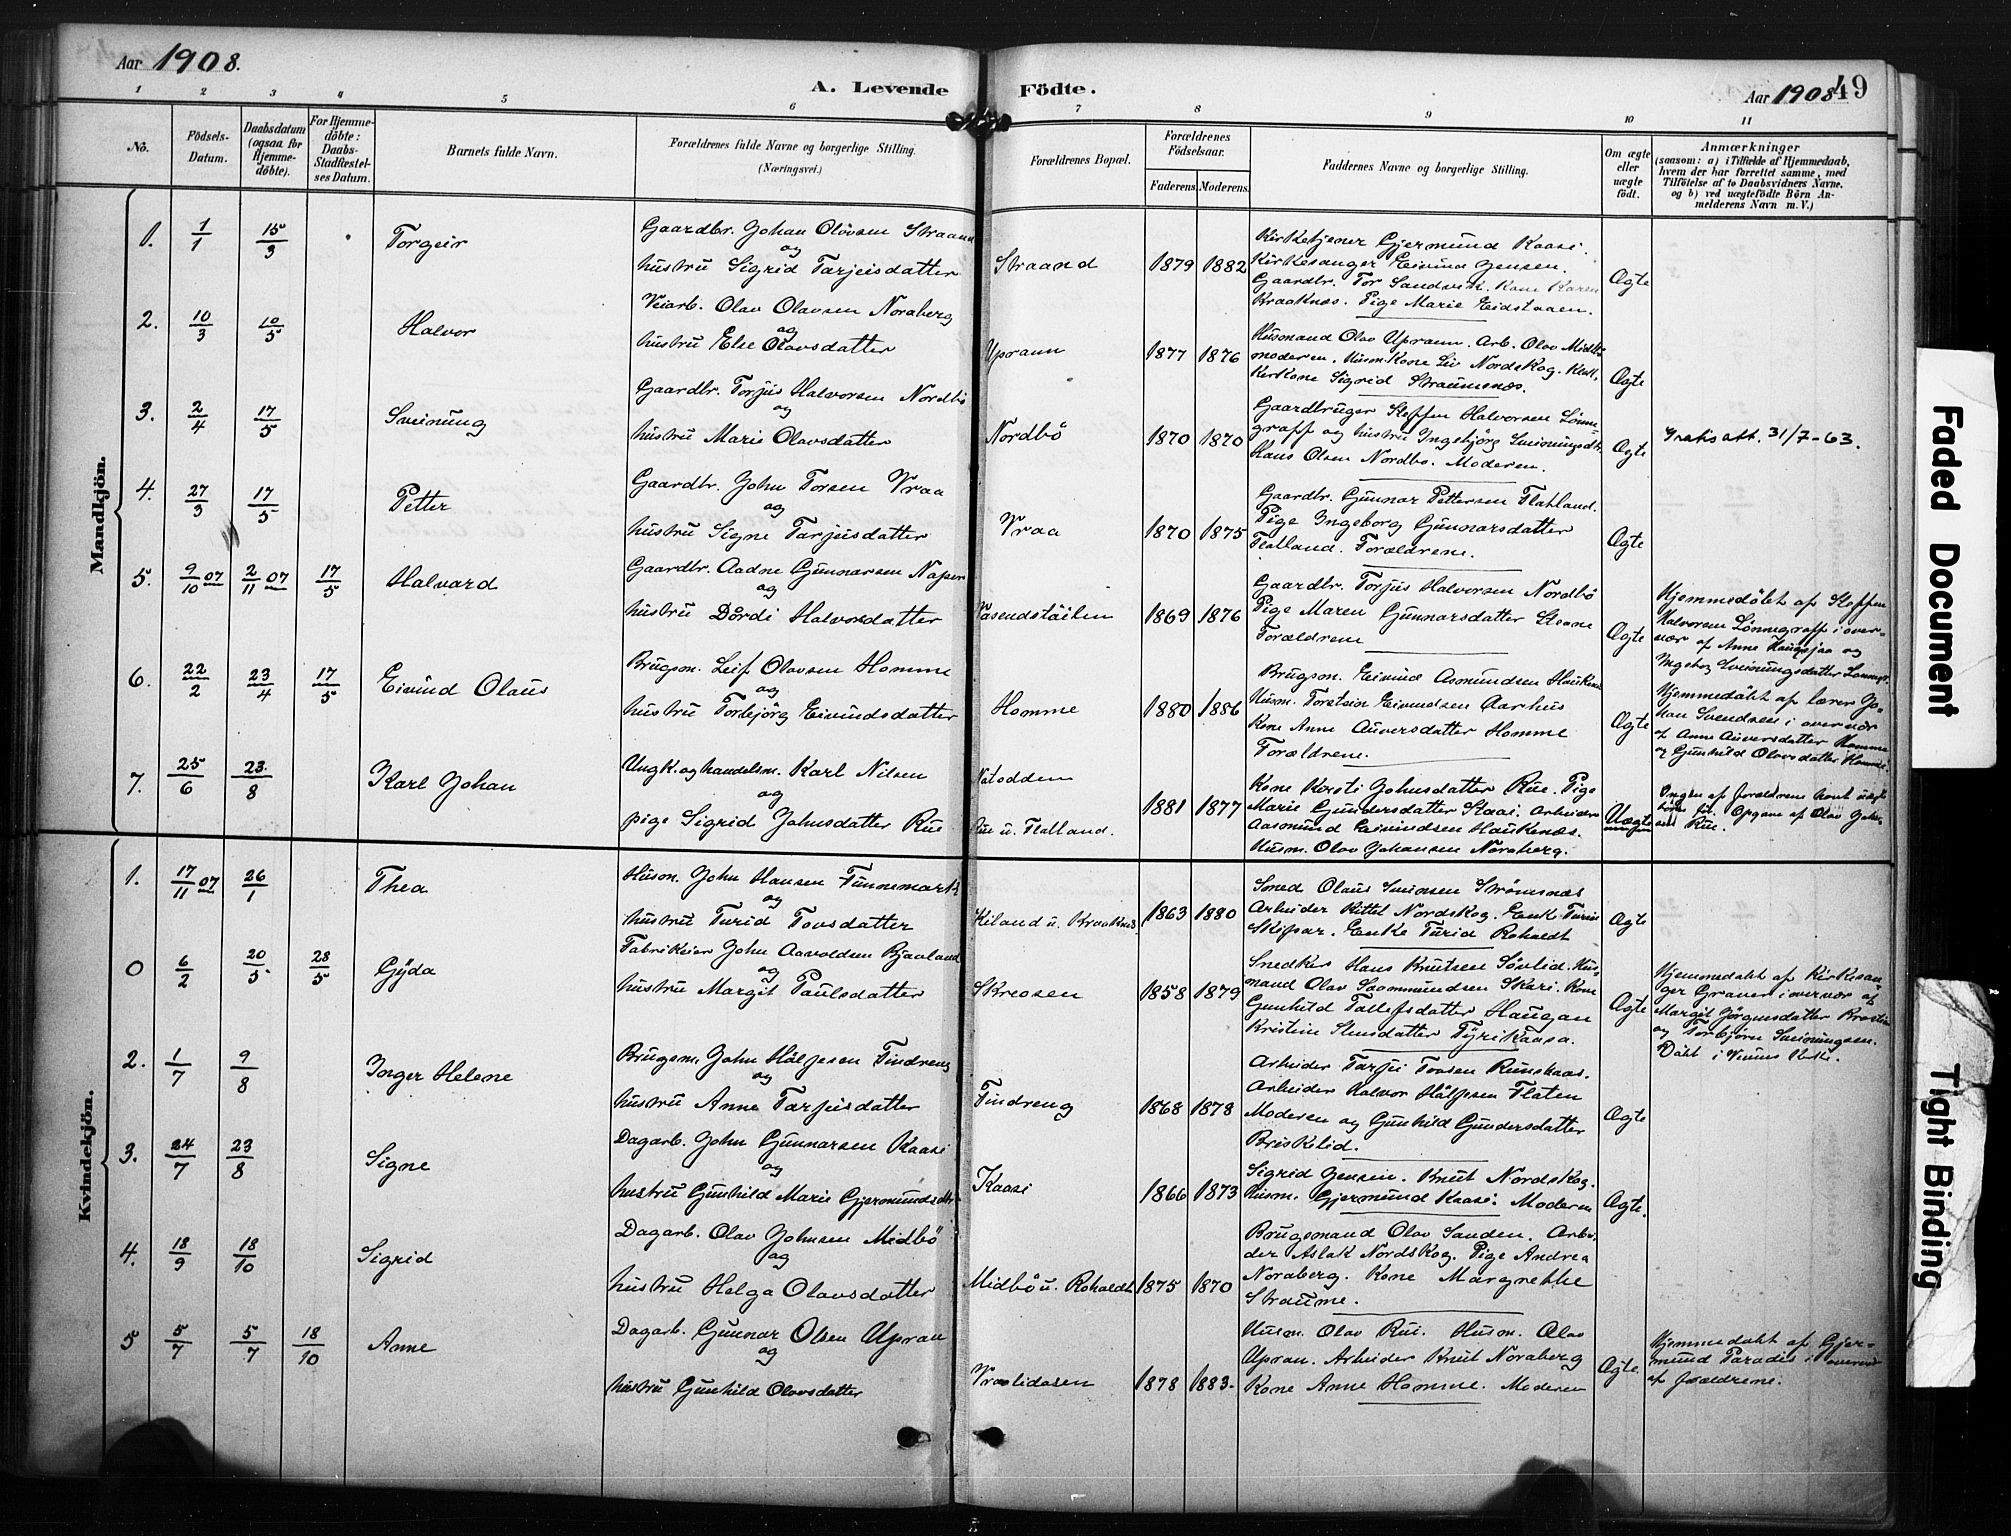 Aar 1908.
A. Levende Födte.
Aar 1908
49
1 2 3 4 5 6 7 8 9 10 11
No.
Födsels-Datum.
Daabsdatum (ogsaa for Hjemmedöbte).
For Hjemmedöbte: Daabs-Stadfæstelses Datum.
Barnets fulde Navn.
Forældrenes fulde Navne og borgerlige Stilling. (Næringsvei.)
Forældrenes Bopæl.
Forældrenes Födselsaar.
Faderens. Moderens.
Faddernes Navne og borgerlige Stilling.
Om ægte eller uægte födt.
Anmærkninger
(saasom: a) i Tilfælde af Hjemmedaab, hvem der har forrettet samme, med Tilföielse af to Daabsvidners Navne, og b) ved uægtefödte Börn Anmelderens Navn m. V.)
Mandkjön.
1. 1/1 15/3 Torgeir
Gaardbr. Johan Olövsen Straand
og
hustru Sigrid Tarjeisdatter
Straand 1879 1882
Kirketjener Gjermund Kaasi.
Kirkesanger Eivind Jensen.
Gaardbr. Tor Sandvik. Kone Karen
Kraaknes. Pige Marie Eidstaaen.
Ægte
2. 10/3 10/5 Halvor
Veiarb. Olav Olavsen Noraberg
og
hustru Else Olavsdatter
Uprann 1877 1876
Husmand Olav Uprann. Arb. Olav Midbö
moderen. Husm. Kone Liv Nordskog.
Kone Sigrid Straumenæs.
Ægte
3. 2/4 17/5 Sveinung
Gaardbr. Torjus Halvorsen Nordbö
og
hustru Marie Olavsdatter
Nordbö 1870 1870
Gaardbruger Steffen Halvorsen Lönne-
graff og hustru Ingebjörg Sveinungsdtr.
Hans Olsen Nordbö. Moderen.
Ægte
Gratis att. 31/7-63.
4. 27/3 17/5 Petter
Gaardbr. John Torsen Vraa
og
hustru Signe Tarjeisdatter
Vraa 1870 1875
Gaardbr. Gunnar Pettersen Flatland.
Pige Ingeborg Gunnarsdatter
Flatland. Forældrene.
Ægte
5. 9/10 07 2/11 07 17/5 Halvard
Gaardbr. Aadne Gunnarsen Naper
og
hustru Dördi Halvorsdatter
Vasendstöilen 1869 1876
Gaardbr. Torjus Halvorsen Nordbö
Pige Maren Gunnarsdatter Steane
Forældrene
Ægte
Hjemmedöbt af Steffen
Halvorsen Lönnegraff i over-
vær af Anne Haugejaa og
Ingebog Sveinungsdatter Lönnegr.
6. 22/2 23/4 17/5 Eivind Olaus
Brugsm. Leif Olavsen Homme
og
hustru Torbjörg Eivindsdatter
Homme 1880 1886
Brugsm. Eivind Asmundsen Haukenæs
Husm. Torstein Eivindsen Aarhus
Kone Anne Auversdatter Homme
Forældrene.
Ægte
Hjemmedöbt af lærer Jo-
han Svendsen i overvær
af Anne Auversdatter Homme
og Gunhild Olavsdatter Homme.
7. 25/6 23/8 Karl Johan
Ungk. og handelsm. Karl Nilsen
og
pige Sigrid Johnsdatter Rui
Notodden
Rui u. Flatland. 1881 1877
Kone Kirsti Johnsdatter Rui. Pige
Marie Gundersdatter Staai. Arbeider
Aasmund Eivindsen Haukenæs.
Husm. Olav Johansen Noraberg.
Uægte
Ingen af forældrene havt uægte
börn för. Opgave af Olav Johnsen
Rui.
Kvindekjön.
1. 17/11 07 26/1 Thea
Husm. John Hansen Tinnemark
og
hustru Turid Tovsdatter
Kiland u. Kraaknes 1863 1880
Smed Olaus Strömsnæs
Arbeider Kittel Nordskog. Enke
Enke Turid Roholdt
Ægte
0 6/2 20/5 28/5 Gyda
Fabrikeier John Aavolden Bjaaland
og
hustru Margit Paulsdatter
Skreosen 1858 1879
Snedker Hans Knutsen Sövlid. Hus-
mand Olav Saamundsen Skari. Kone
Gunhild Tallefsdatter Haugan
Kristine Tyrikaasa.
Ægte
Hjemmedöbt af kirkesan-
ger Graver i overvær af
Margit Jörgensdatter
og Torbjörn Sveinungsen.
Döbt i Vinius Kirke.
2. 1/7 9/8 Inger Helene
Brugsm. John Hölgesen Tindreng
og
hustru Anne Tarjeisdatter
Tindreng 1868 1878
Arbeider Tarjei Tovsen Runskaas.
Arbeider Halvor Hölgesen Flaten
Moderen og Gunhild Gundersdatter
Briskelid.
Ægte
3. 24/7 23/8 Signe
Dagarb. John Gunnarsen Kaasi
og
hustru Gunhild Marie Gjermundsdtr.
Kaasi 1866 1873
Sigrid Jensen. Knut Nordskog.
Husm. Gjermund Kaasi. Moderen
Ægte.
4. 18/9 18/10 Sigrid
Dagarb. Olav Johnsen Midbö
og
hustru Helga Olavsdatter
Midbö u. Roholdt 1875 1870
Brugsmand Olav Sanden. Arbei-
der Aslak Nordskog. Pige Andrea
Noraberg. Kone Margrethe
Straume.
5 5/7 5/7 18/10 Anne
Dagarb. Gunnar Olsen Upran
og
hustru Gunhild Olavsdatter
Vraalidosen 1878 1883.
Husm. Olav Rui. Husm. Olav
Upran. Arbeider Knut Noraberg
Kone Anne Homme. Moderen
Ægte.
Hjemmedöbt af Gjer-
mund Paradis i overvær
af forældrene.
Faded Document
Tight Binding